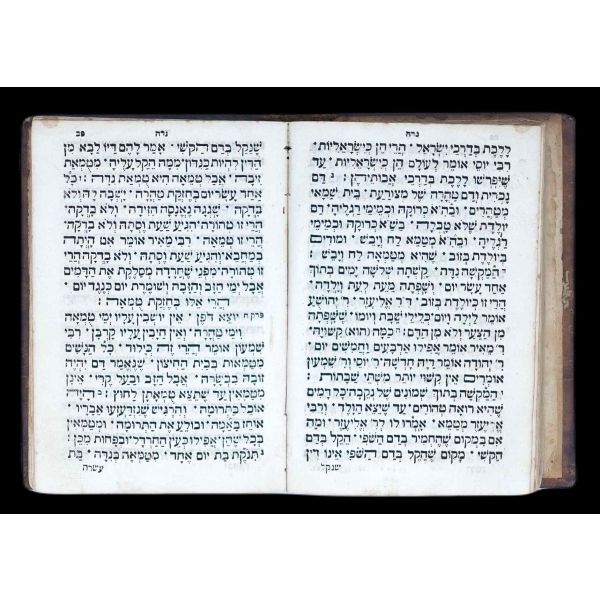 נדה
ללכת בדרכי ישראל · הרי הן כישראליות ·
רבי יוסי אומר לעולם הן כישראליות · עד
שיפרשו ללכת בדרכי אבותיהן : דם
נכרית ודם טהרה של מצורעת · בית שמאי
מטהרים · ובה״א כרוקה וכמימי רגליה · דם
יולדת שלא טבלה · בש״א כרוקה וכמימי
רגליה · ובה״א מטמא לח ויבש · ומודים
ביולדת בזוב · שהיא מטמאה לח ויבש :
המקשה נדה · קשתה שלשה ימים בתוך
אחד עשר יום · ושפתה מעת לעת וילדה ·
הרי זו כיולדת בזוב · ד׳ ר׳ אליעזר · ר׳ יהושע
אומר לילה ויום · כלילי שבת ויומו · ששפתה
מן הצער ולא מן הדם : כמה (הוא) קשויה ·
ר׳ מאיר אומר אפילו ארבעים וחמשים יום ·
ר׳ יהודה אומר דיה חדשה · ר׳ יוסי ור׳ שמעון
אומרים אין קשוי יותר משתי שבתות :
המקשה בתוך שמונים של נקבה · כל דמים
שהיא רואה טהורים · עד שיצא הולד · ורבי
אליעזר מטמא · אמרו לו לר׳ אליעזר · ומה
אם במקום שהחמיר בדם השפי · הקל בדם
הקשי · מקום שהקל בדם השפי אינו דין
שנקל
נדה
פב
שנקל בדם הקשי · אמר להם דיו לבא מן
הדין להיות כנדון · ממה הקל עליה · מטמאת
זיבה · אבל טמאה היא טמאת נדה : כל
אחד עשר יום בחזקת טהרה · ישבה לה ולא
בדקה · שגגה נאנסה הזידה · ולא בדקה ·
הרי זו טהורה · הגיע שעת וסתה ולא בדקה ·
הרי זו טמאה · רבי מאיר אומר אם היתה
במחבא · והגיע שעת וסתה · ולא בדקה הרי
זו טהורה · מפני שחרדה מסלקת את הדמים
אבל ימי הזב והזבה ושומרת יום כנגד יום ·
הרי אלו בחזקת טמאה :
פרק ה יוצא דפן · אין יושבין עליו ימי טומאה
וימי טהרה · ואין חיבין עליו קרבן · רבי
שמעון אומר הרי זה כילוד · כל הנשים
מטמאות בבית החיצון · שנאמר דם יהיה
זובה בבשרה · אבל הזב ובעל קרי · אינן
מטמאין עד שתצא טומאתן לחוץ : היה
אוכל בתרומה · והרגיש שנזדעזעו אבריו ·
אוחז באמה · ובולע את התרומה · ומטמאין
בכל שהן · אפילו כעין החרדל ובפחות מכן :
תנוקת בת יום אחד · מטמאה בנדה · בת
עשרה